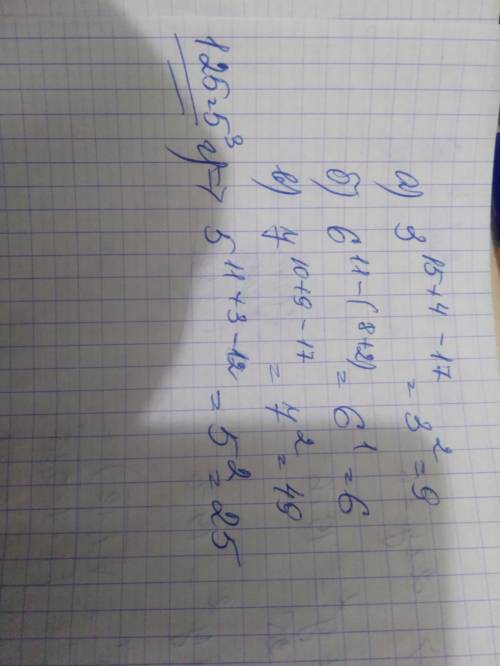 а) 3^15+4-17 = 3^2 = 9
б) 6^11-(8+2) = 6^1 = 6
в) 7^10+9-17 = 7^2 = 49
125=5^3 г)=> 5^11+3-12 = 5^2 = 25